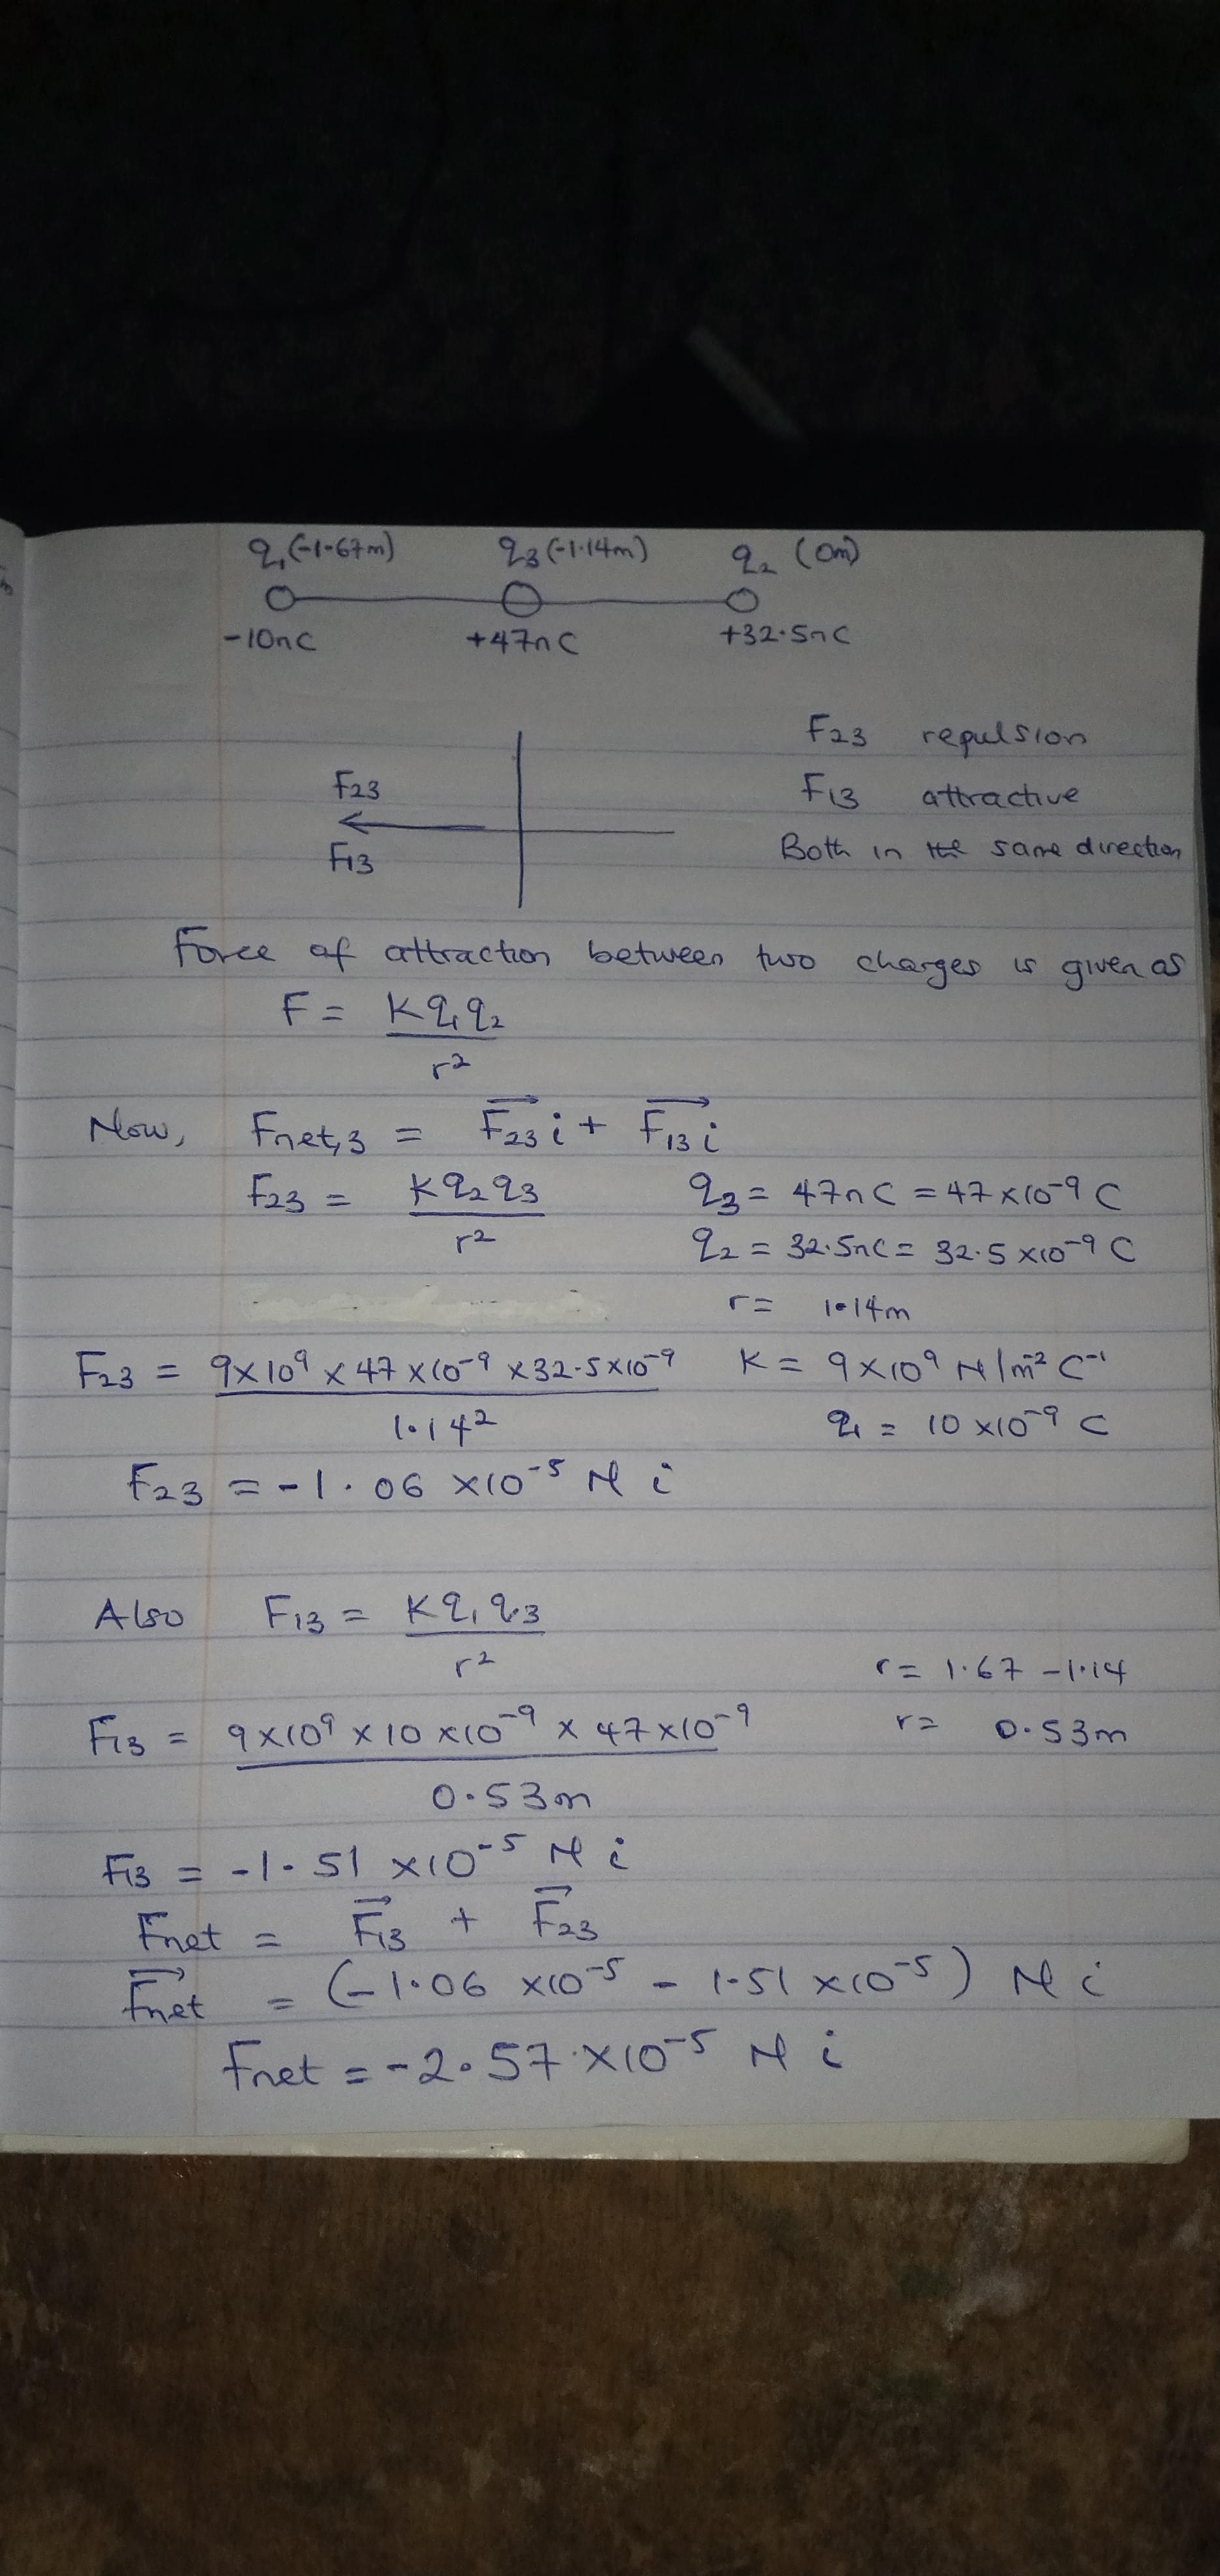 q₁(-1.67m) q₃(-1.14m) q₂ (0m)
-10nC +47nC +32.5nC
F₂₃ repulsion
F₂₃ F₁₃ attractive
F₁₃ Both in the same direction
Force of attraction between two charges is given as
F = Kq₁q₂
r²
Now, Fnet,3 = F₂₃ i + F₁₃ i
F₂₃ = Kq₂q₃ q₃ = 47nC = 47×10⁻⁹ C
r² q₂ = 32.5nC = 32.5×10⁻⁹ C
r = 1.14m
F₂₃ = 9×10⁹ × 47×10⁻⁹ × 32.5×10⁻⁹ K = 9×10⁹ N/m⁻² C⁻¹
1.14² q₁ = 10×10⁻⁹ C
F₂₃ = -1.06 ×10⁻⁵ N i
Also F₁₃ = Kq₁q₃
r² r = 1.67 - 1.14
F₁₃ = 9×10⁹ × 10×10⁻⁹ × 47×10⁻⁹ r = 0.53m
0.53m
F₁₃ = -1.51 ×10⁻⁵ N i
Fnet = F₁₃ + F₂₃
Fnet = (-1.06 ×10⁻⁵ - 1.51 ×10⁻⁵) N i
Fnet = -2.57 ×10⁻⁵ N i